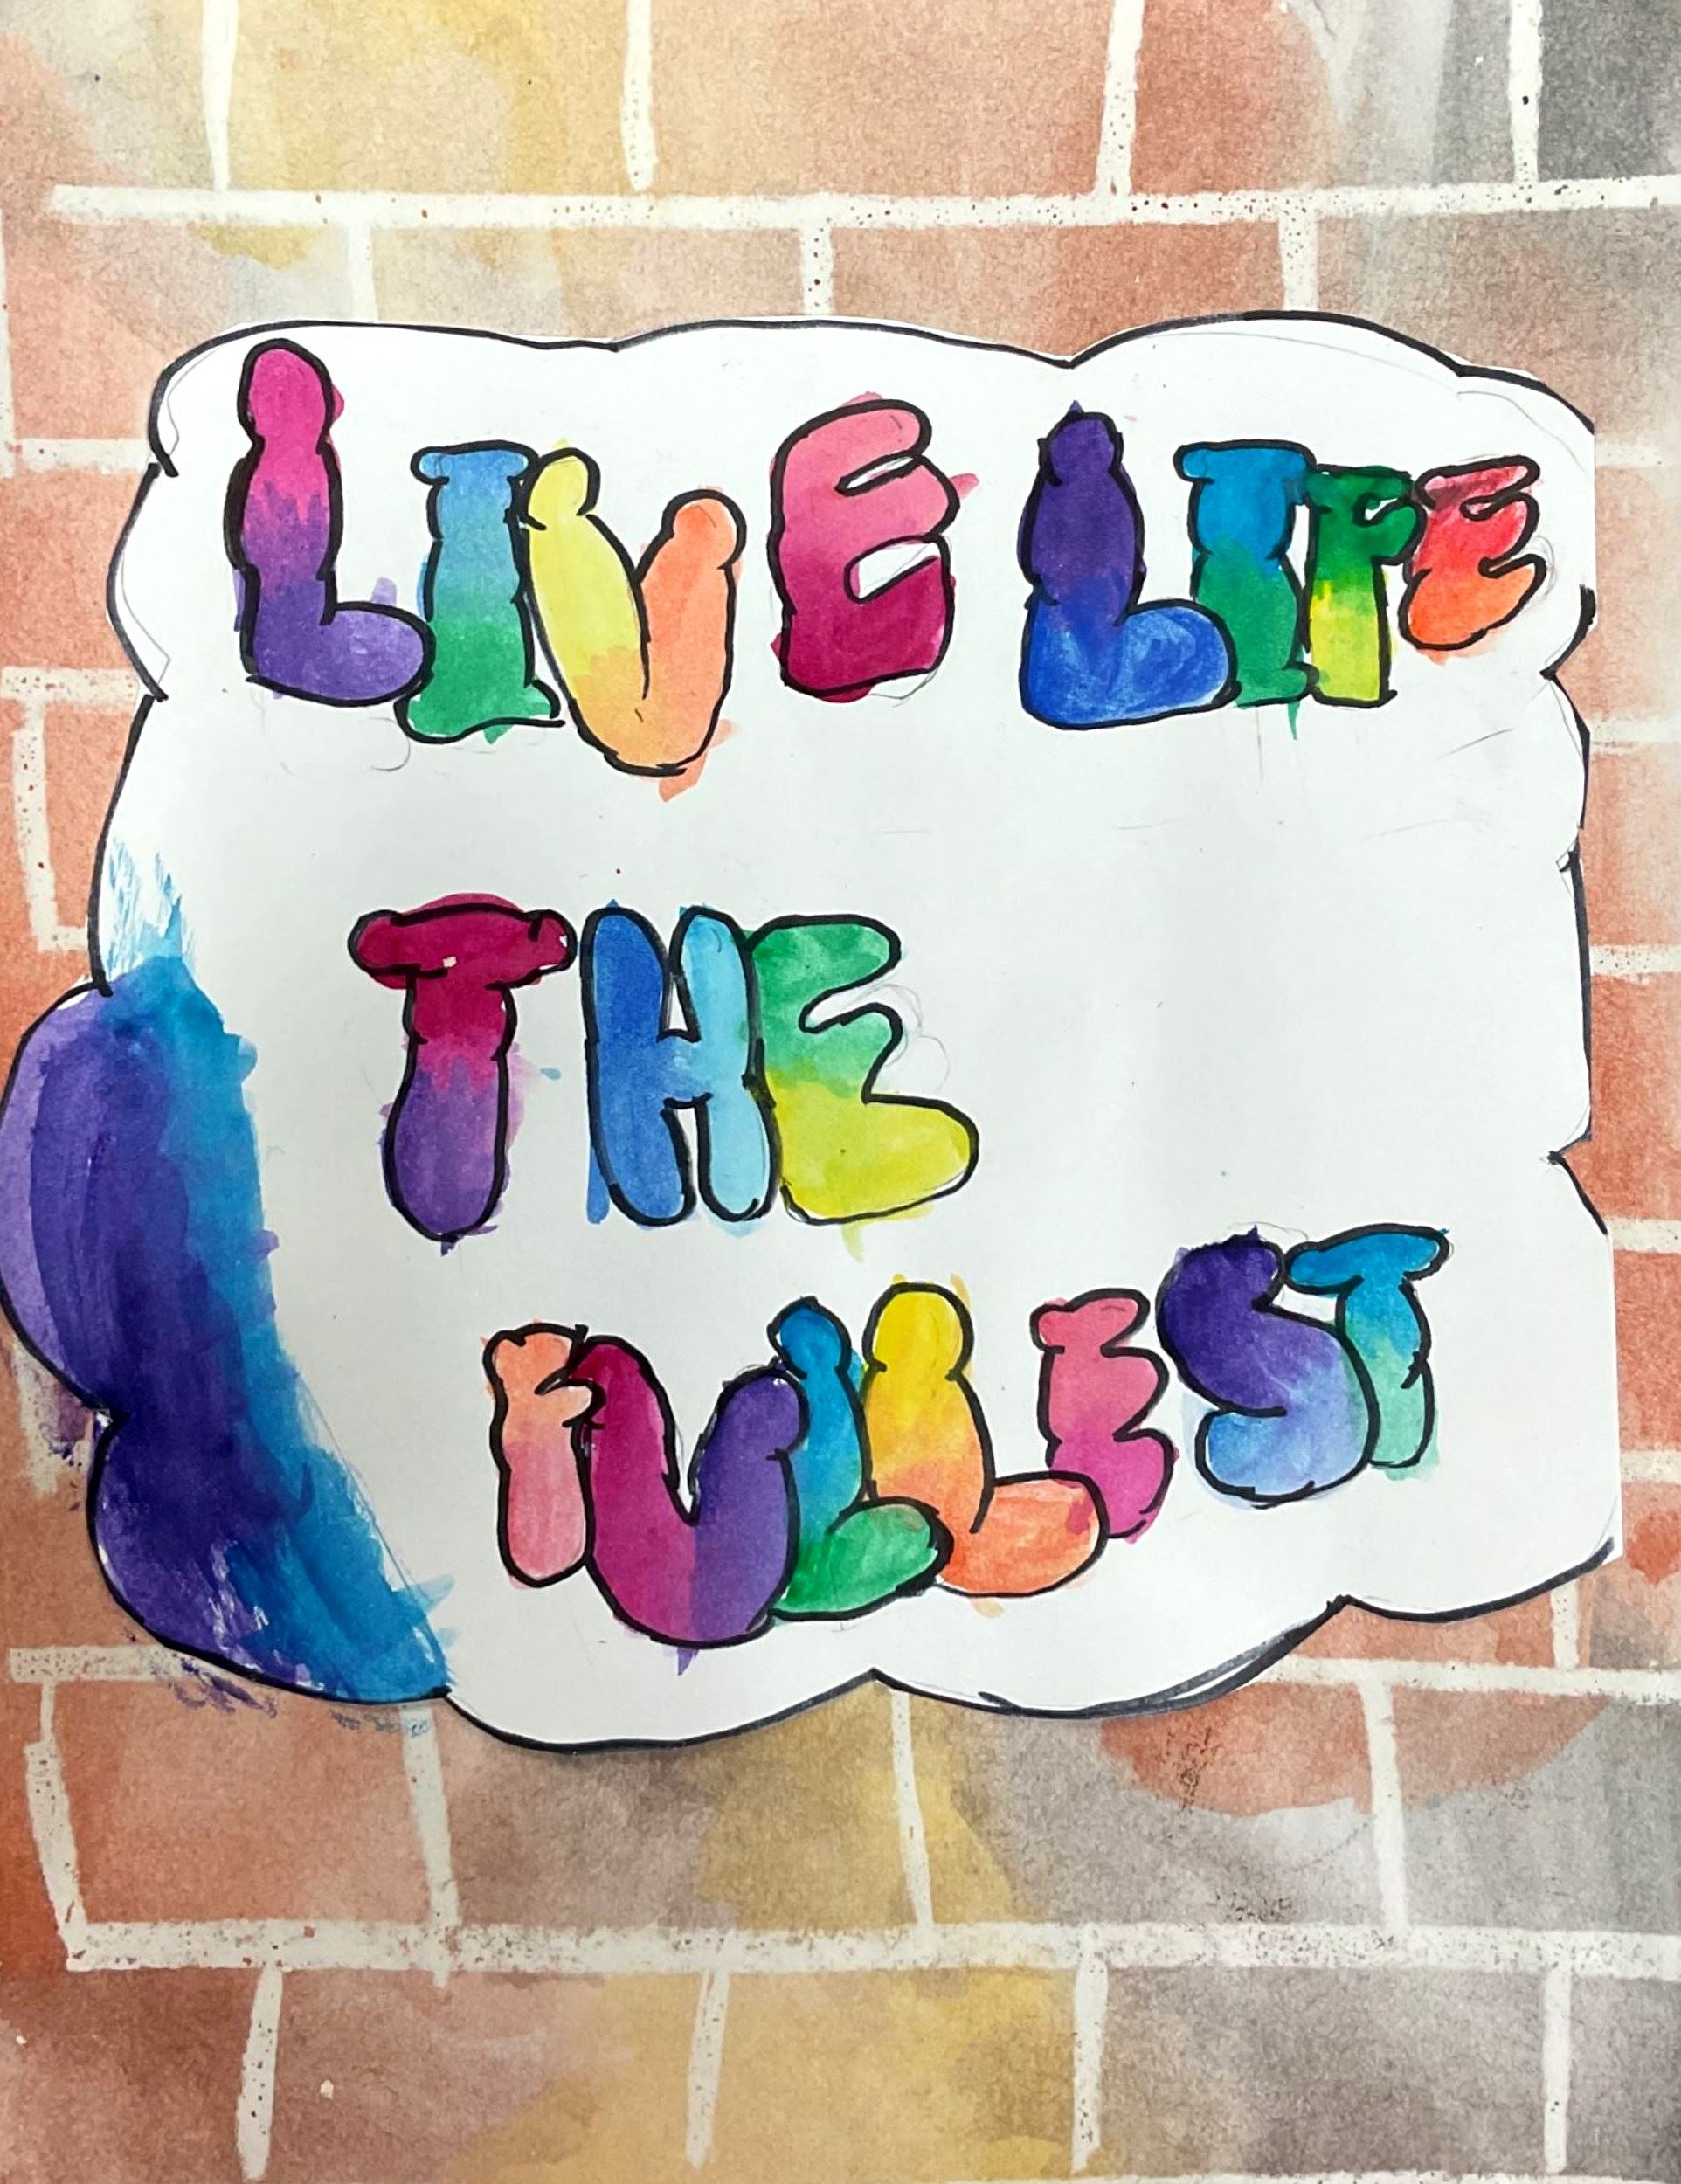 LIVE LIFE
THE
FULLEST